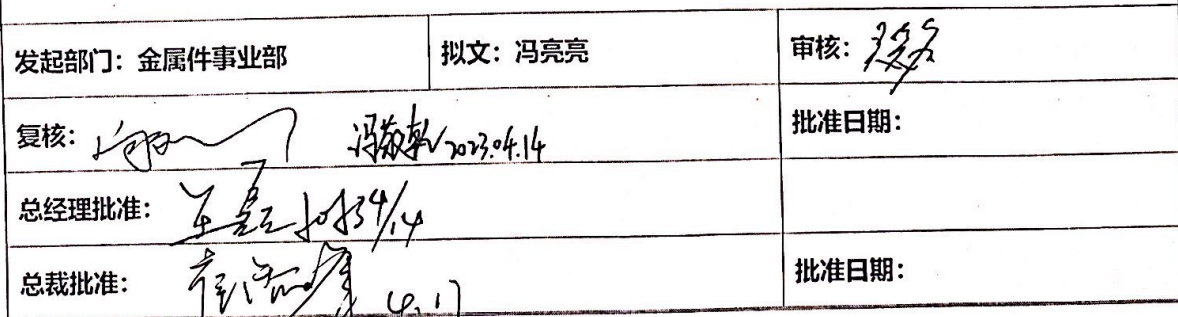 发起部门：金属件事业部 拟文：冯亮亮 审核：
复核： 2023.04.14 批准日期：
总经理批准： 2023 4/14
总裁批准： 4.17 批准日期：